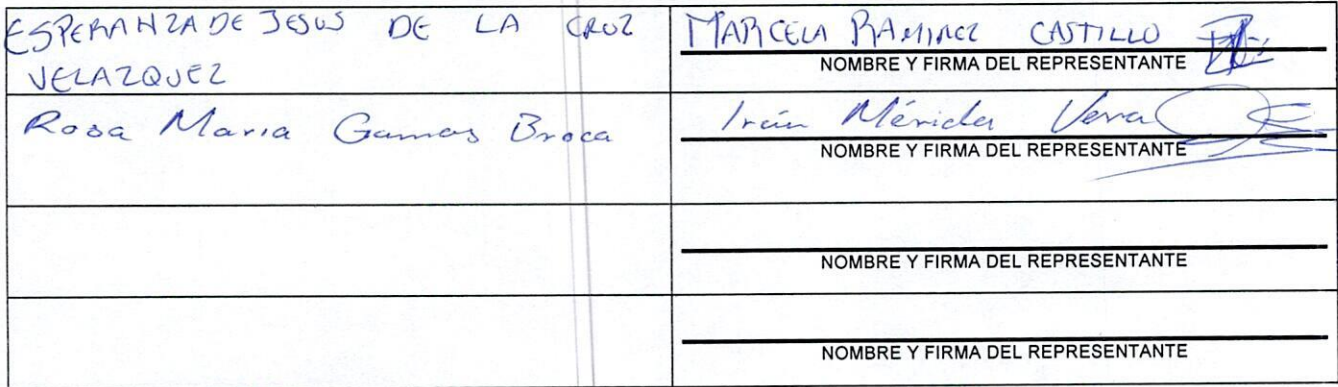 ESPERANZA DE JESUS DE LA CRUZ
VELAZQUEZ
MARCELA RAMIREZ CASTILLO
NOMBRE Y FIRMA DEL REPRESENTANTE
Rosa Maria Gamas Broca
Irán Mérida Vera
NOMBRE Y FIRMA DEL REPRESENTANTE
NOMBRE Y FIRMA DEL REPRESENTANTE
NOMBRE Y FIRMA DEL REPRESENTANTE